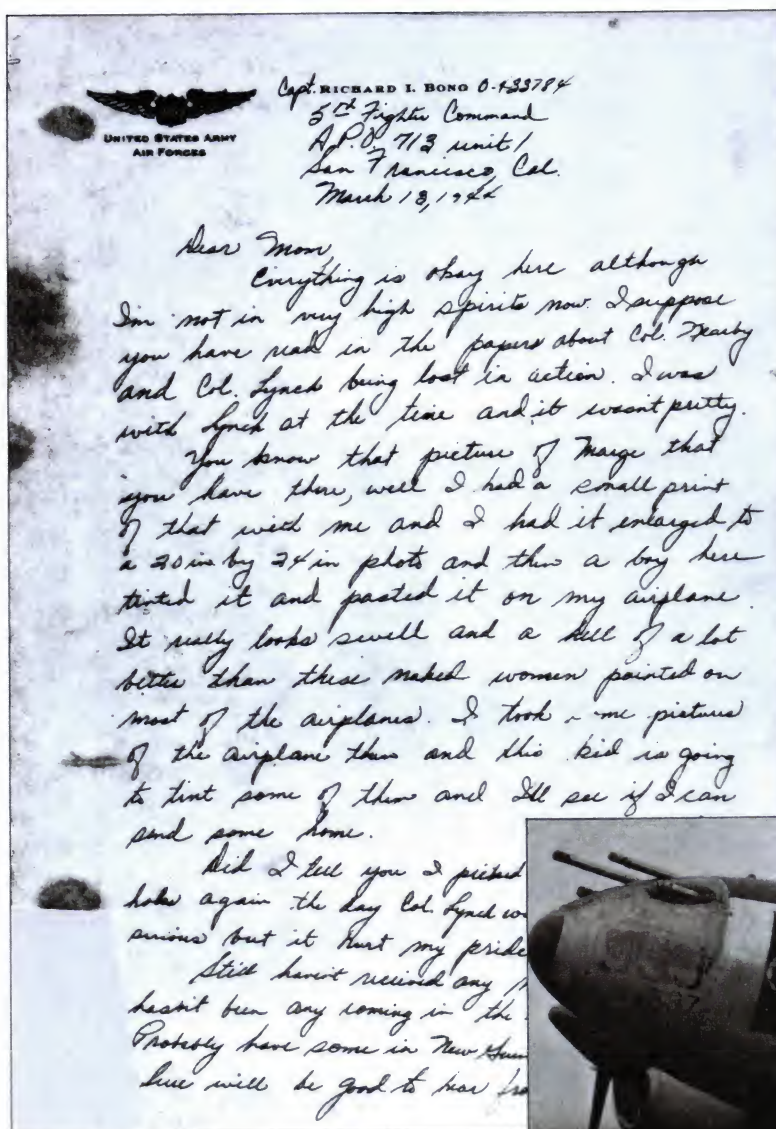 UNITED STATES ARMY
AIR FORCES
Capt. RICHARD I. BONG O-433784
5th Fighter Command
A.P.O. 713 unit 1
San Francisco, Cal.
March 13, 1944
Dear Mom,
Everything is okay here although
I'm not in very high spirits now. I suppose
you have read in the papers about Col. Kearby
and Col. Lynch being lost in action. I was
with Lynch at the time and it wasn't pretty.
You know that picture of Marge that
you have there, well I had a small print
of that with me and I had it enlarged to
a 20 in by 24 in photo and then a boy here
tinted it and pasted it on my airplane.
It really looks swell and a hell of a lot
better than these naked women painted on
most of the airplanes. I took me pictures
of the airplane then and this kid is going
to tint some of them and I'll see if I can
send some home.
Did I tell you I picked
holes again the day Col. Lynch
serious but it hurt my pride
Still haven't received any
hasn't been any coming in the
Probably have some in New
here will be good to hear